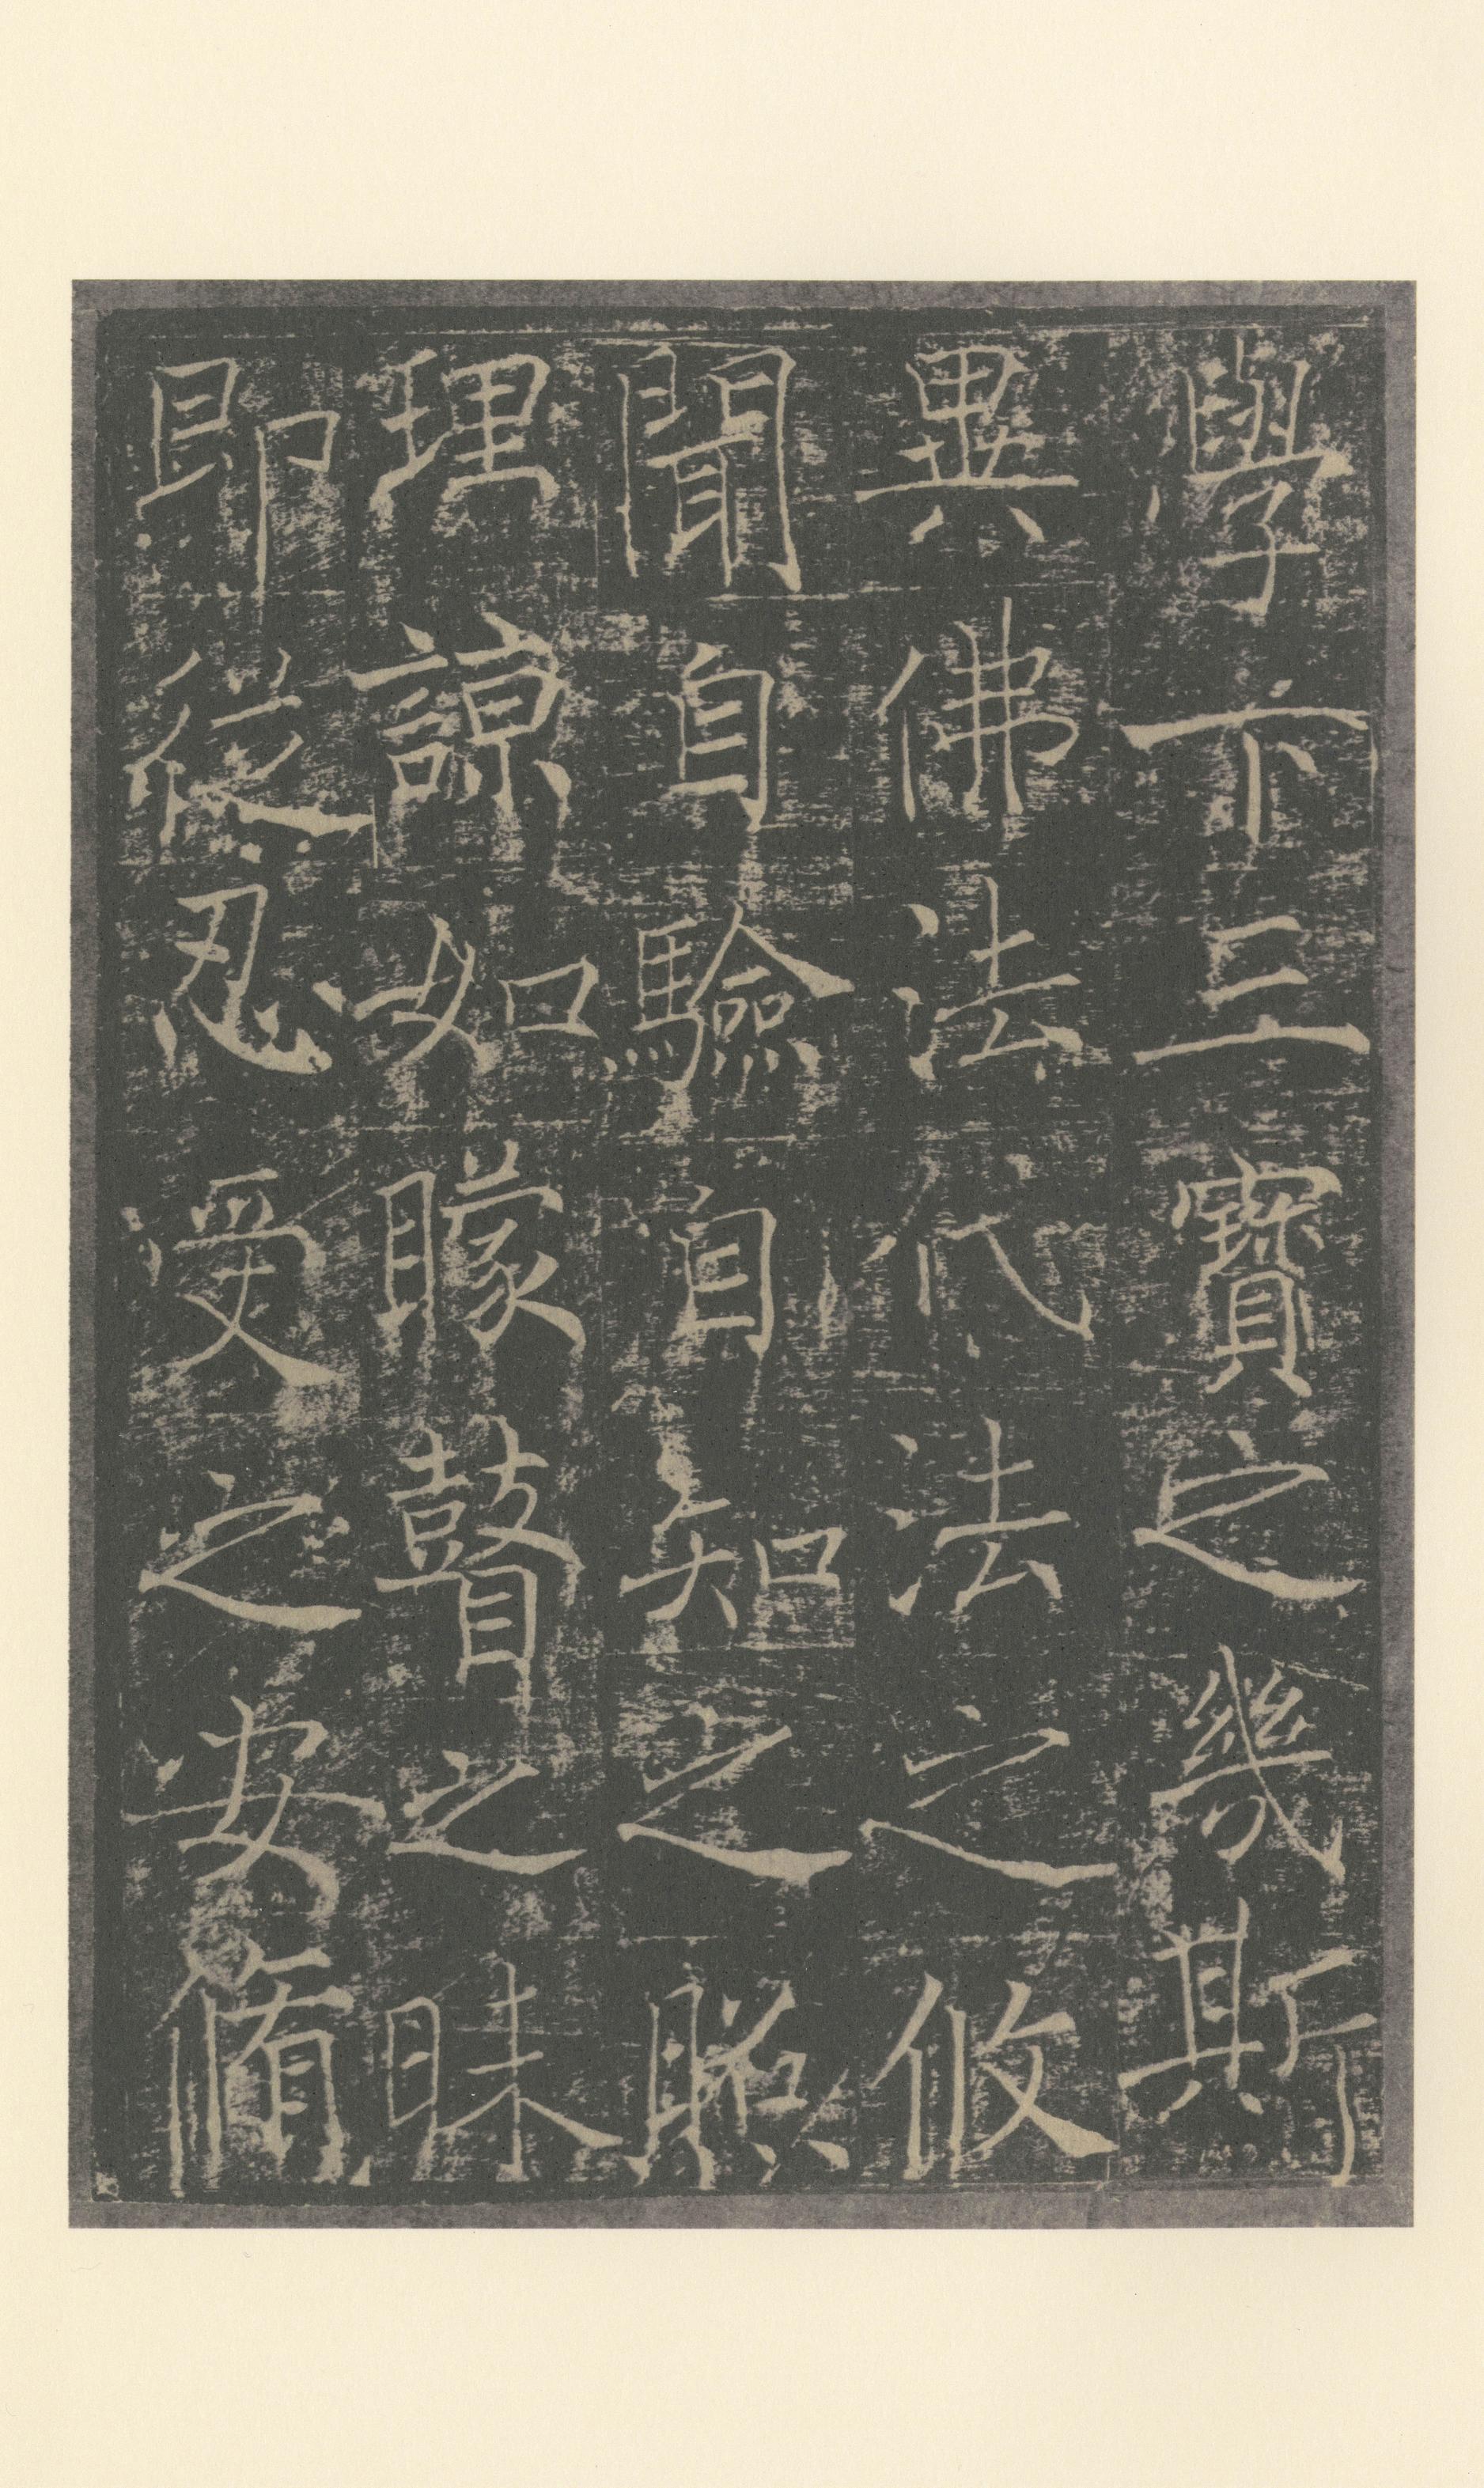 學下三寶之幾斯
異佛法法之攸
聞自驗自知之照
理諒如矇瞽之昧
即從忍受之安脩